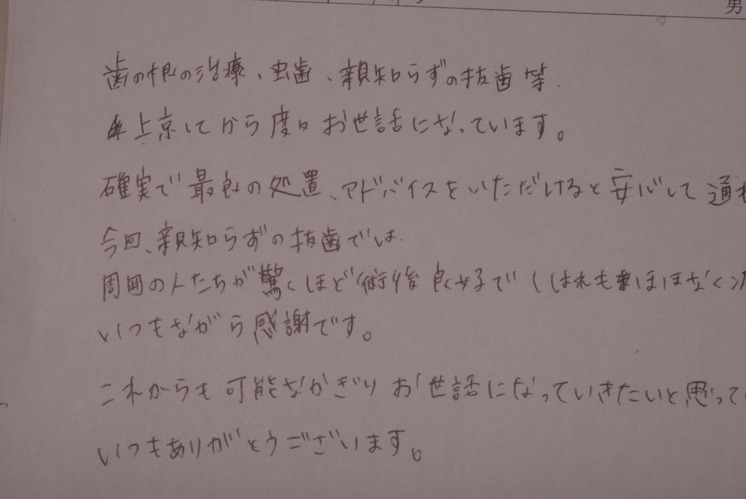 男
歯の根の治療、虫歯、親知らずの抜歯等
上京してから度々お世話になっています。
確実で最良の処置、アドバイスをいただけると安心して通
今回、親知らずの抜歯では、
周囲の人たちが驚くほど術後良好で くはれもほぼなく
いつもながら感謝です。
これからも可能なかぎりお世話になっていきたいと思って
いつもありがとうございます。